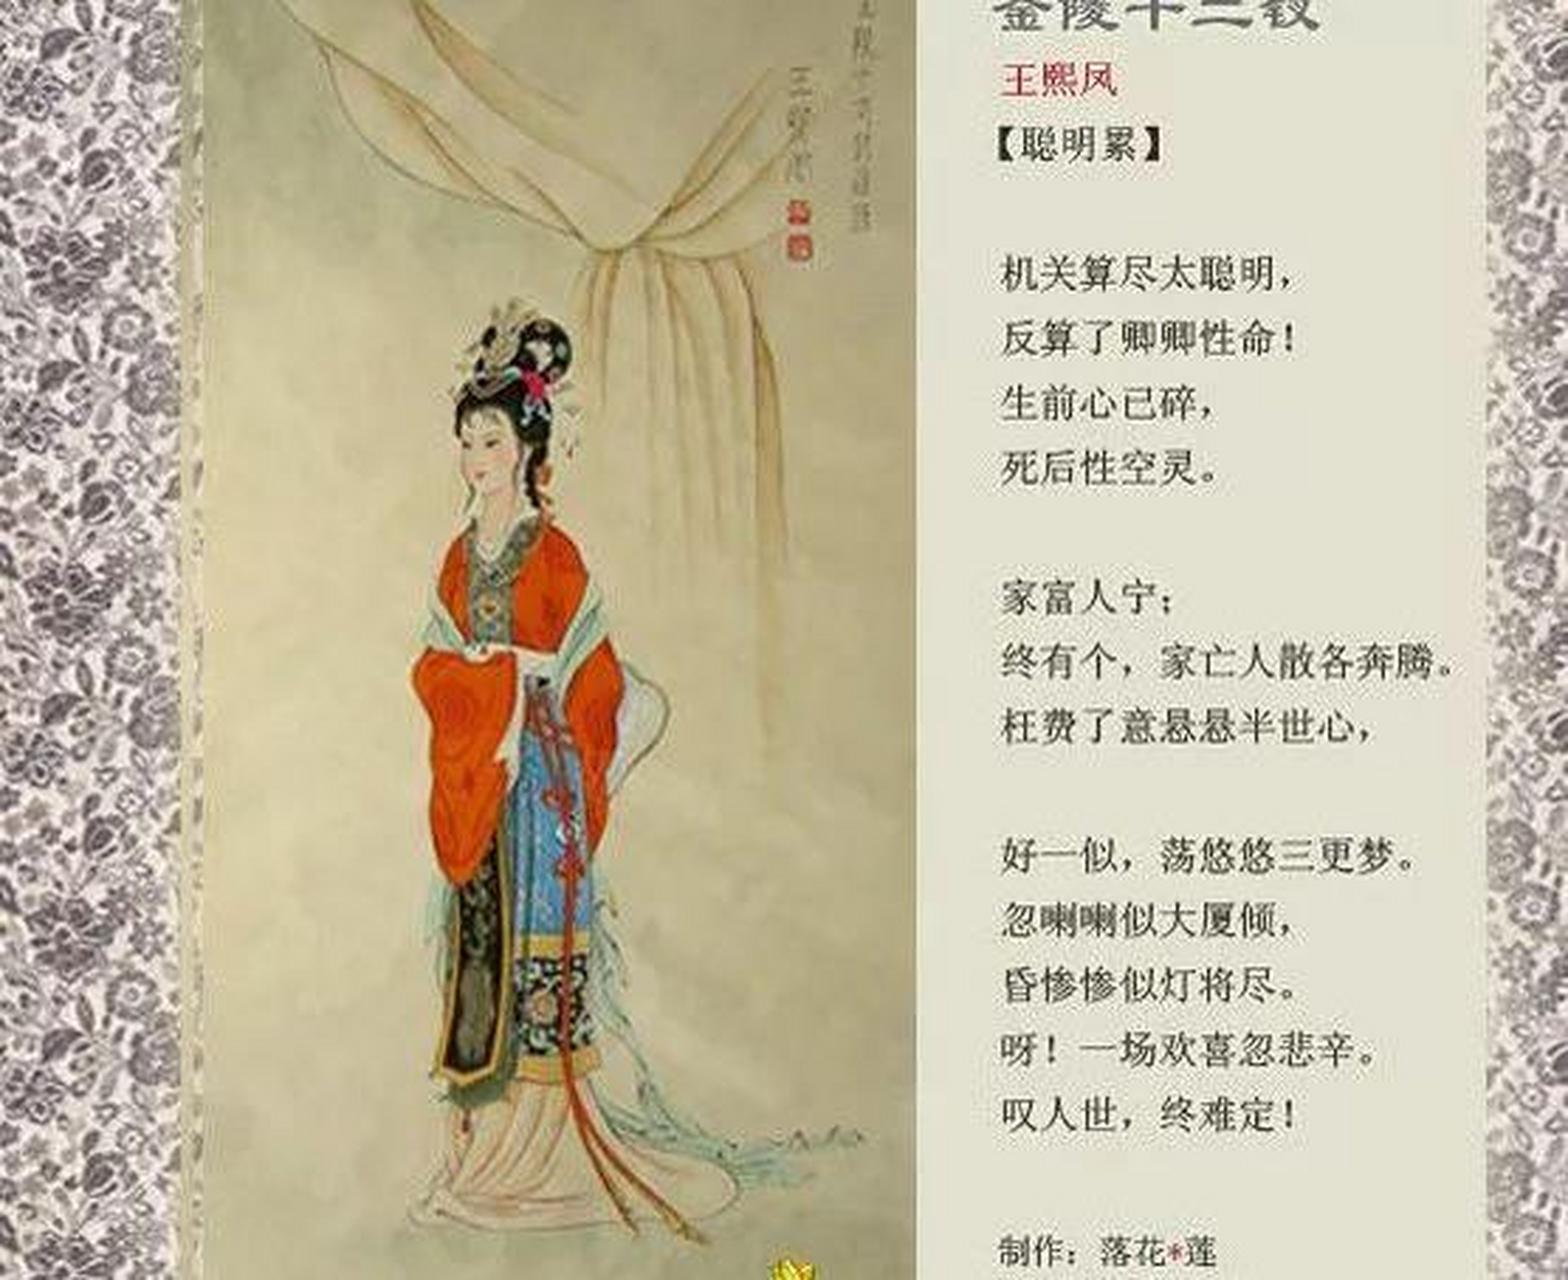 金陵十二钗
王熙凤
【聪明累】
机关算尽太聪明，
反算了卿卿性命！
生前心已碎，
死后性空灵。
家富人宁；
终有个，家亡人散各奔腾。
枉费了意悬悬半世心，
好一似，荡悠悠三更梦。
忽喇喇似大厦倾，
昏惨惨似灯将尽。
呀！一场欢喜忽悲辛。
叹人世，终难定！
制作：落花*莲